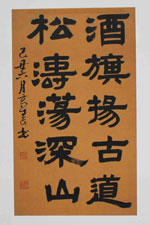 酒旗揚古道
松濤蕩深山
己丑六月